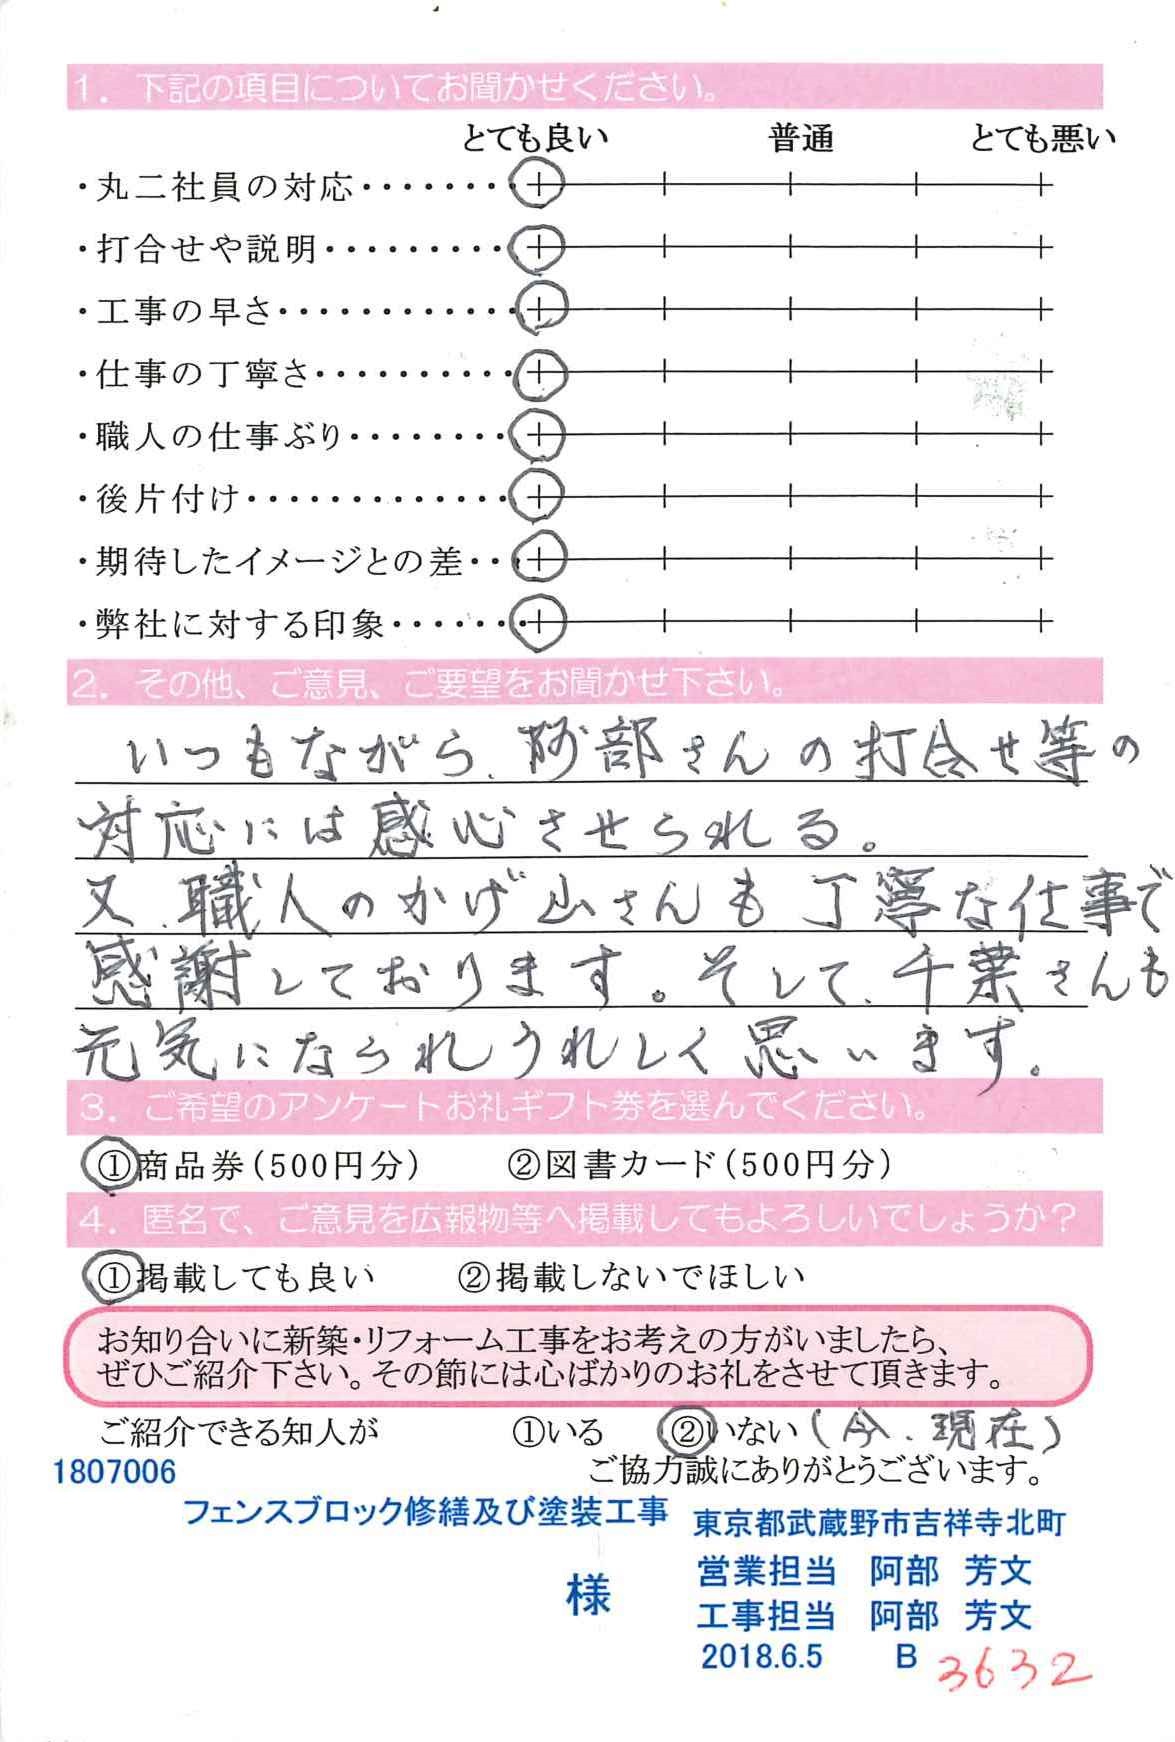 1. 下記の項目についてお聞かせください。
とても良い 普通 とても悪い
・丸二社員の対応・・・・・・・
・打合せや説明・・・・・・・・・
・工事の早さ・・・・・・・・・・・
・仕事の丁寧さ・・・・・・・・・・
・職人の仕事ぶり・・・・・・・
・後片付け・・・・・・・・・・・・
・期待したイメージとの差・・・
・弊社に対する印象・・・・・・
2. その他、ご意見、ご要望をお聞かせ下さい。
いつもながら、阿部さんの打合せ等の
対応には感心させられる。
又、職人のかげ山さんも丁寧な仕事で
感謝しております。そして、千葉さんも
元気になられうれしく思います。
3. ご希望のアンケートお礼ギフト券を選んでください。
①商品券(500円分) ②図書カード(500円分)
4. 匿名で、ご意見を広報物等へ掲載してもよろしいでしょうか?
①掲載しても良い ②掲載しないでほしい
お知り合いに新築・リフォーム工事をお考えの方がいましたら、
ぜひご紹介下さい。その節には心ばかりのお礼をさせて頂きます。
ご紹介できる知人が ①いる ②いない(今、現在)
1807006 ご協力誠にありがとうございます。
フェンスブロック修繕及び塗装工事 東京都武蔵野市吉祥寺北町
様 営業担当 阿部 芳文
工事担当 阿部 芳文
2018.6.5 B 3632